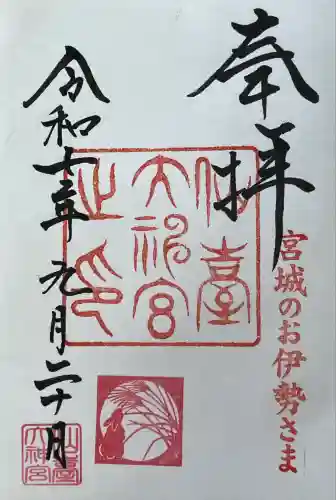 奉拝
宮城のお伊勢さま
仙臺
大神宮
之印
令和七年九月二十日
仙臺
大神宮